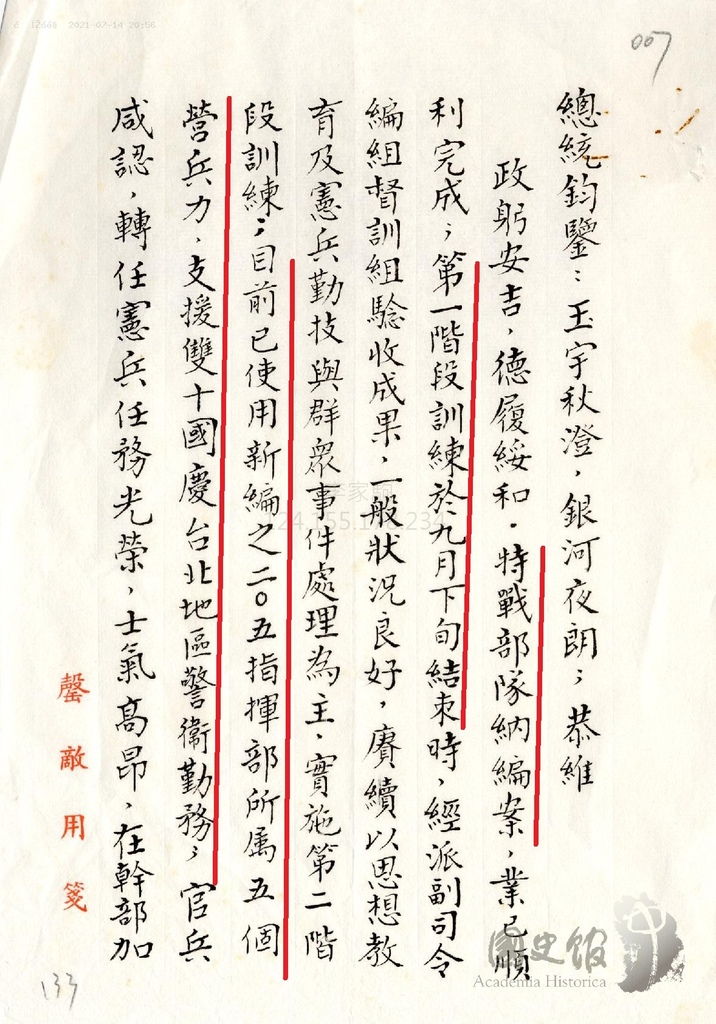 007
總統鈞鑒：玉宇秋澄，銀河夜朗；恭維
政躬安吉，德履綏和。特戰部隊納編案，業已順
利完成；第一階段訓練於九月下旬結束時，經派副司令
編組督訓組驗收成果，一般狀況良好，賡續以思想教
育及憲兵勤技與群眾事件處理為主，實施第二階
段訓練；目前已使用新編之二〇五指揮部所属五個
營兵力，支援雙十國慶台北地區警衛勤務；官兵
咸認，轉任憲兵任務光榮，士氣高昂，在幹部加
罄敵用箋
133
國史館
Academia Historica
2021-07-14